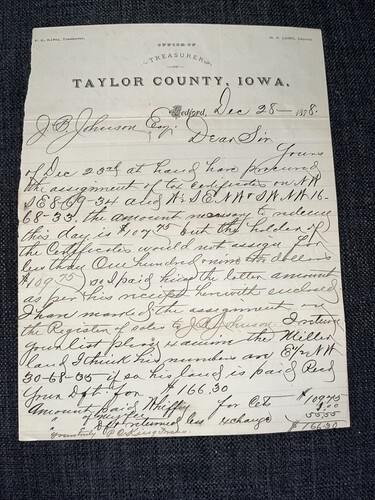 OFFICE OF
TREASURER
TAYLOR COUNTY, IOWA.
Bedford, Dec 28 1878.
J B Johnson Esq.
Dear Sir
Yours
of Dec 23d at hand have procured
the assignment of tax certificates on NW
SE 8-69-34 and NW 16-
68-33. the amount necessary to redeem
this day is $107.75 but the holder of
the Certificates would not assign for
less than One hundred nine dollars
$109.75) so I paid him the latter amount
as per his receipt herewith enclosed
I have marked the assignment on
the Register of sales to J B Johnson. I return
your list please examine the Miller
land I think his numbers are NW
30-68-35 if so his land is paid Recd
Your Dft. for $166.30
Amount paid for Cets $109.75
1.00
Dft returned less exchange 55.55
$166.30